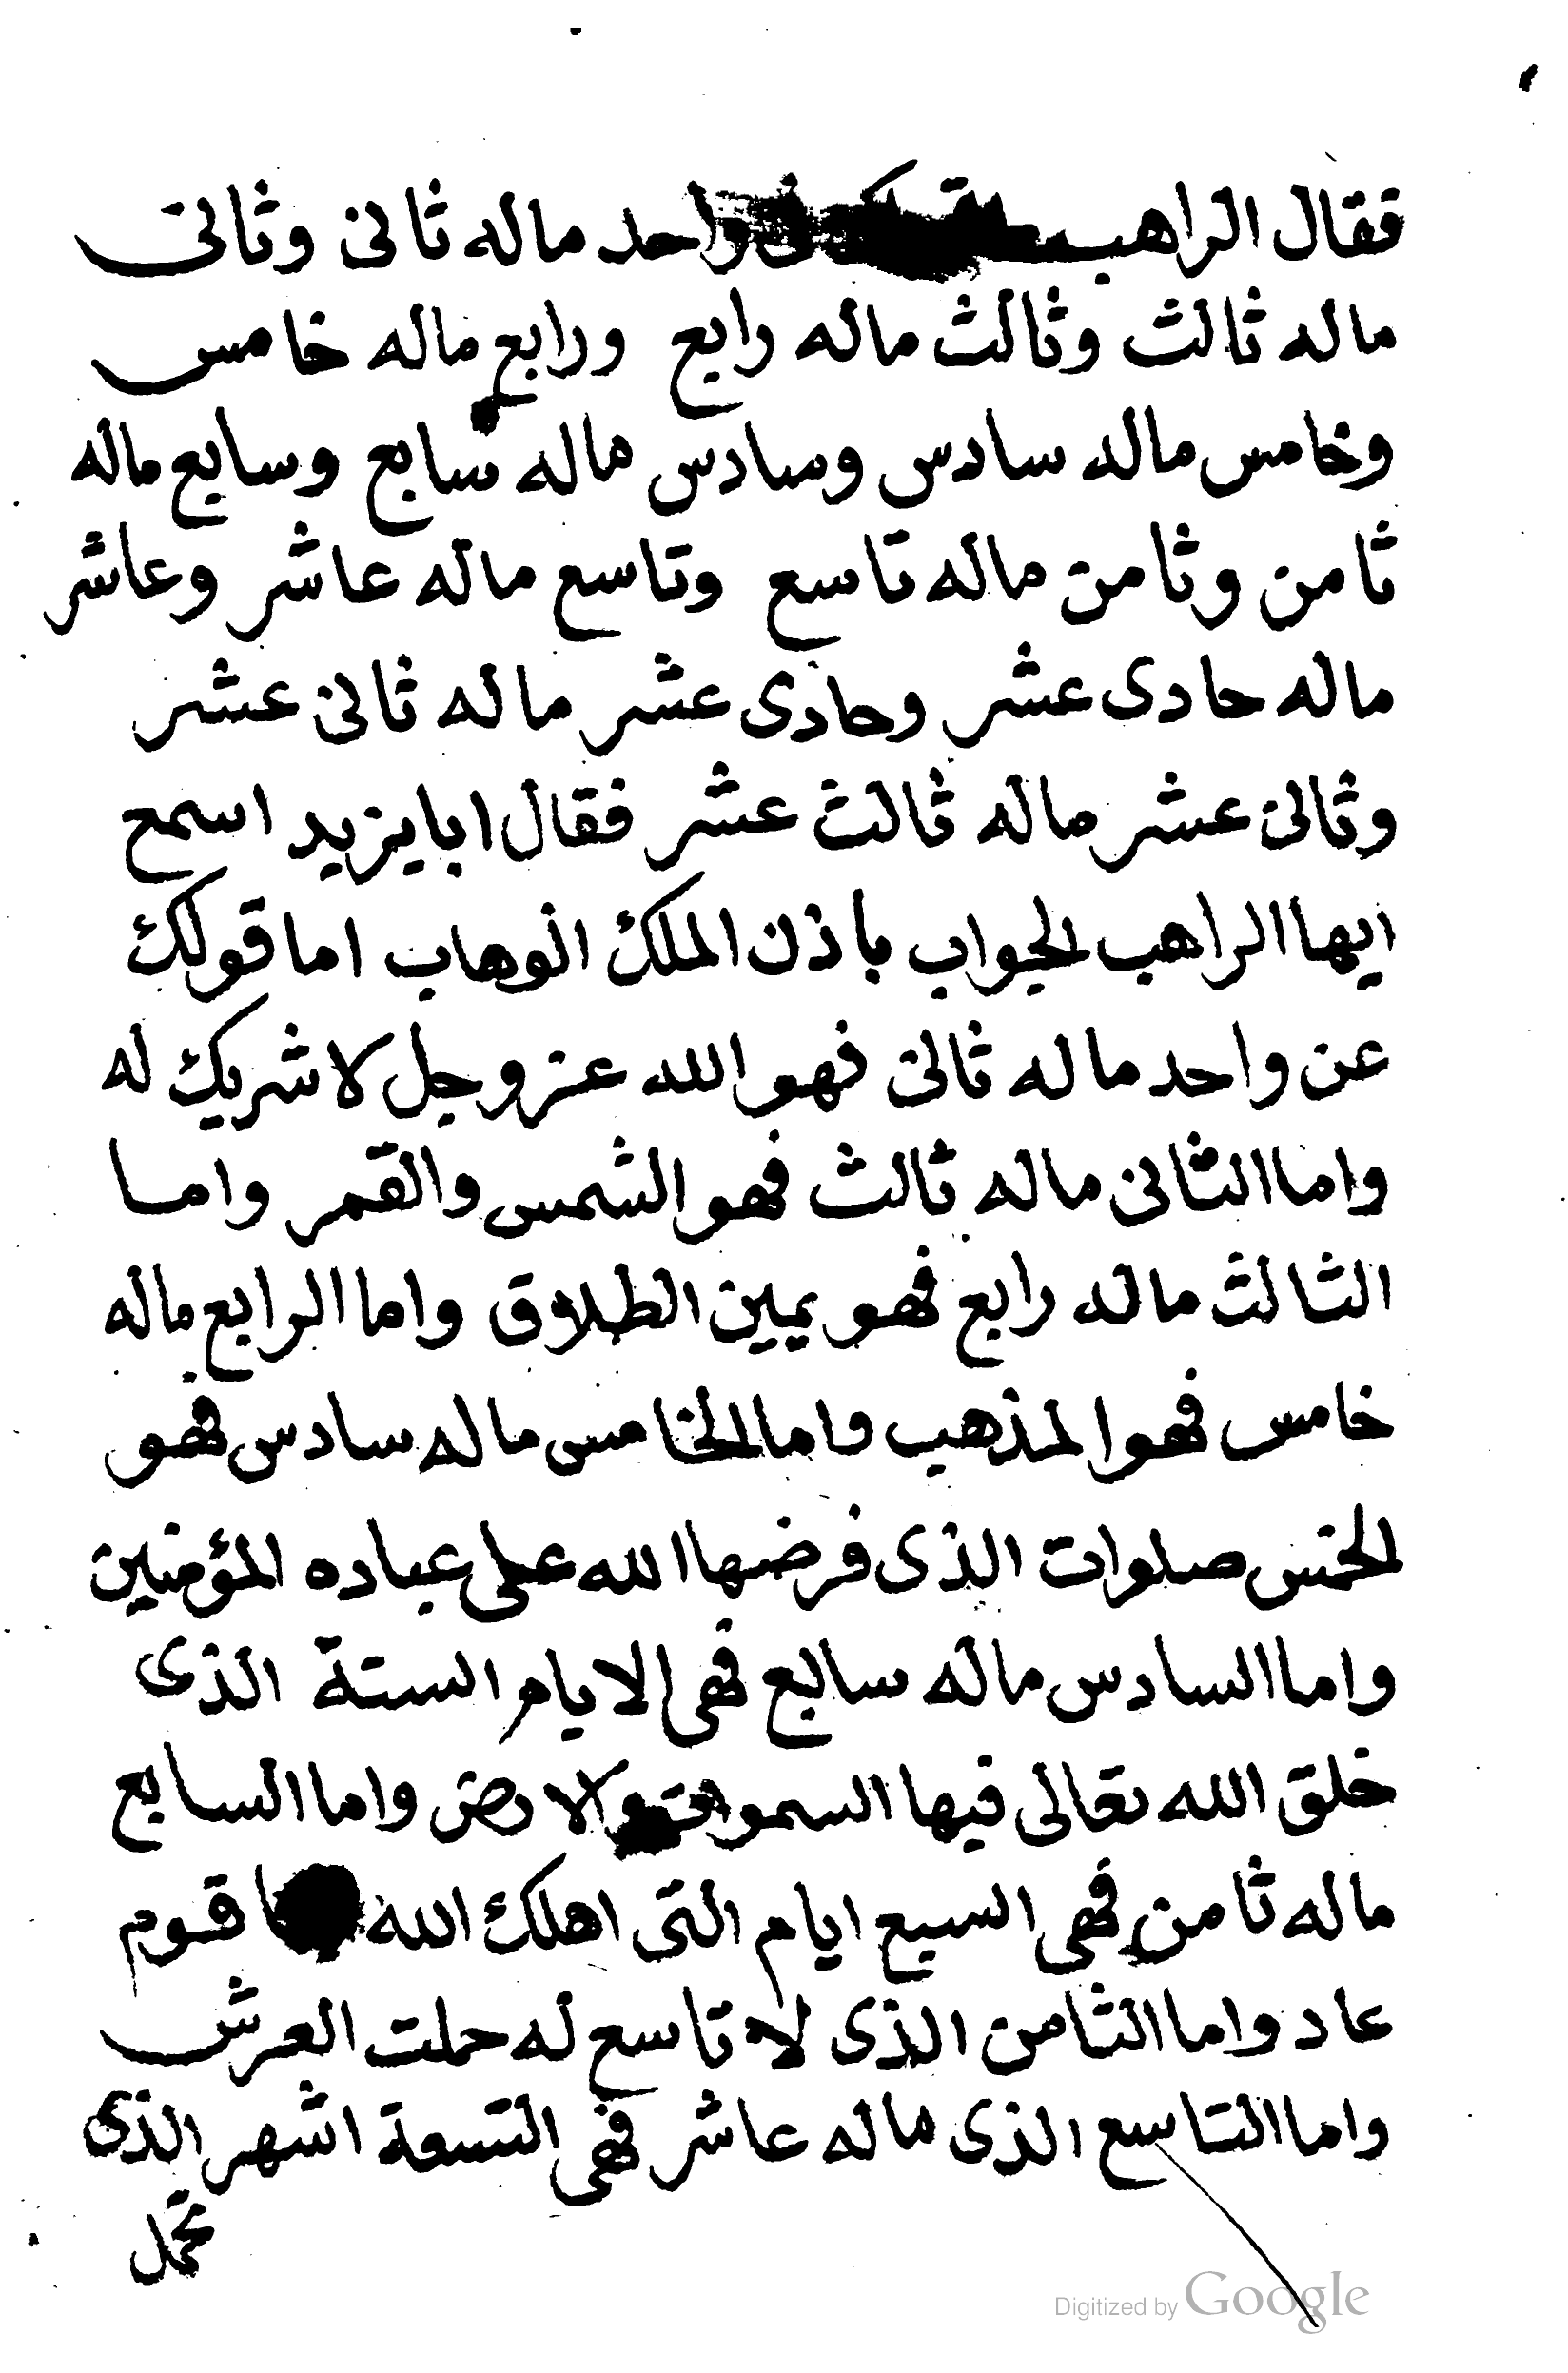 فقال الراهب واحد ماله ثانى وثانى
ماله ثالث وثالث ماله رابع ورابع ماله خامس
وخامس ماله سادس وسادس ماله سابع وسابع ماله
ثامن وثامن ماله تاسع وتاسع ماله عاشر وعاشر
ماله حادى عشر وحادى عشر ماله ثانى عشر
وثانى عشر ماله ثالث عشر فقال ابايزيد اسمع
ايها الراهب الجواب باذن الملك الوهاب اما قولك
عن واحد ماله ثانى فهو الله عز وجل لا شريك له
واما الثانى ماله ثالث فهو الشمس والقمر واما
الثالث ماله رابع فهو يمين الطلاق واما الرابع ماله
خامس فهو المذهب واما الخامس ماله سادس فهو
الخمس صلوات الذى فرضها الله على عباده المؤمنين
واما السادس ماله سابع فهى الايام الستة الذى
خلق الله تعالى فيها السموات والارض واما السابع
ماله ثامن فهى السبع ايام التى اهلك الله قوم
عاد واما الثامن الذى لا تاسع له حملت العرش
واما التاسع الذى ماله عاشر فهى التسعة اشهر الذى
تحمل
Digitized by Google